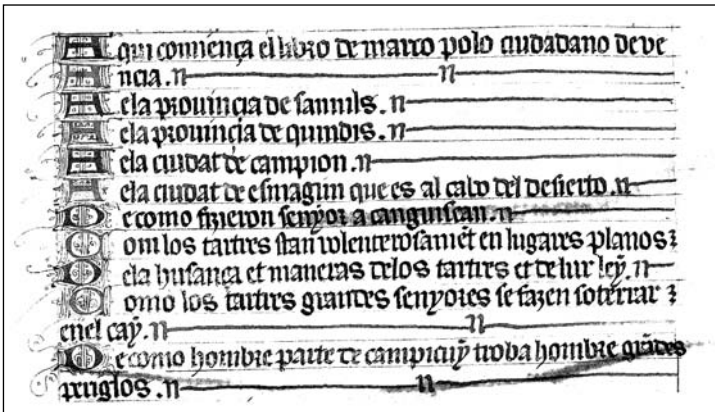 Aqui comiença el libro de marco polo ciudadano de ve
Ancia .n n
A ela prouincia de sannils .n
A ela prouincia de quindis .n
A ela ciudat de campion .n
A ela ciudat de esinagun que es al cabo del desierto .n
De como fizieron senyor a canguiscan .n
Com los tartres stan volenterosamēt en lugares planos ⁊
Dela husança et maneras delos tartres et de lur leẏ .n
Como los tartres grandes senyores se fazen soterrar ⁊
enel caẏ .n n
De como hombre parte de campiciuẏ troba hombre grādes
periglos .n n